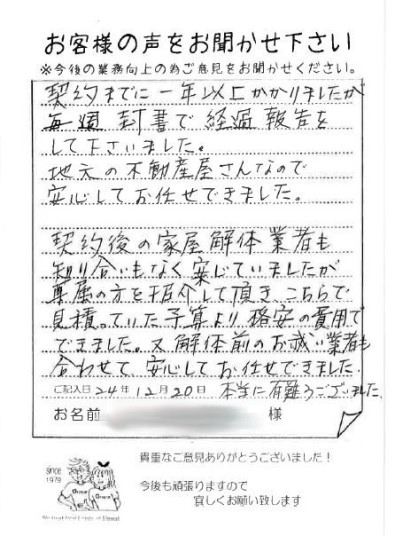 お客様の声をお聞かせ下さい
※今後の業務向上の為ご意見をお聞かせください。
契約までに一年以上かかりましたが
毎週封書で経過報告を
して下さいました。
地元の不動産屋さんなので
安心してお任せできました。
契約後の家屋解体業者も
知り合いもなく案じていましたが
専属の方を紹介して頂き、こちらで
見積っていた予算より格安の費用で
できました。又解体前のお祓い業者も
合わせて、安心してお任せできました。
ご記入日24年12月20日 本当に有難うございました。
お名前 様
貴重なご意見ありがとうございました!
今後も頑張りますので
宜しくお願い致します
SINCE
1979